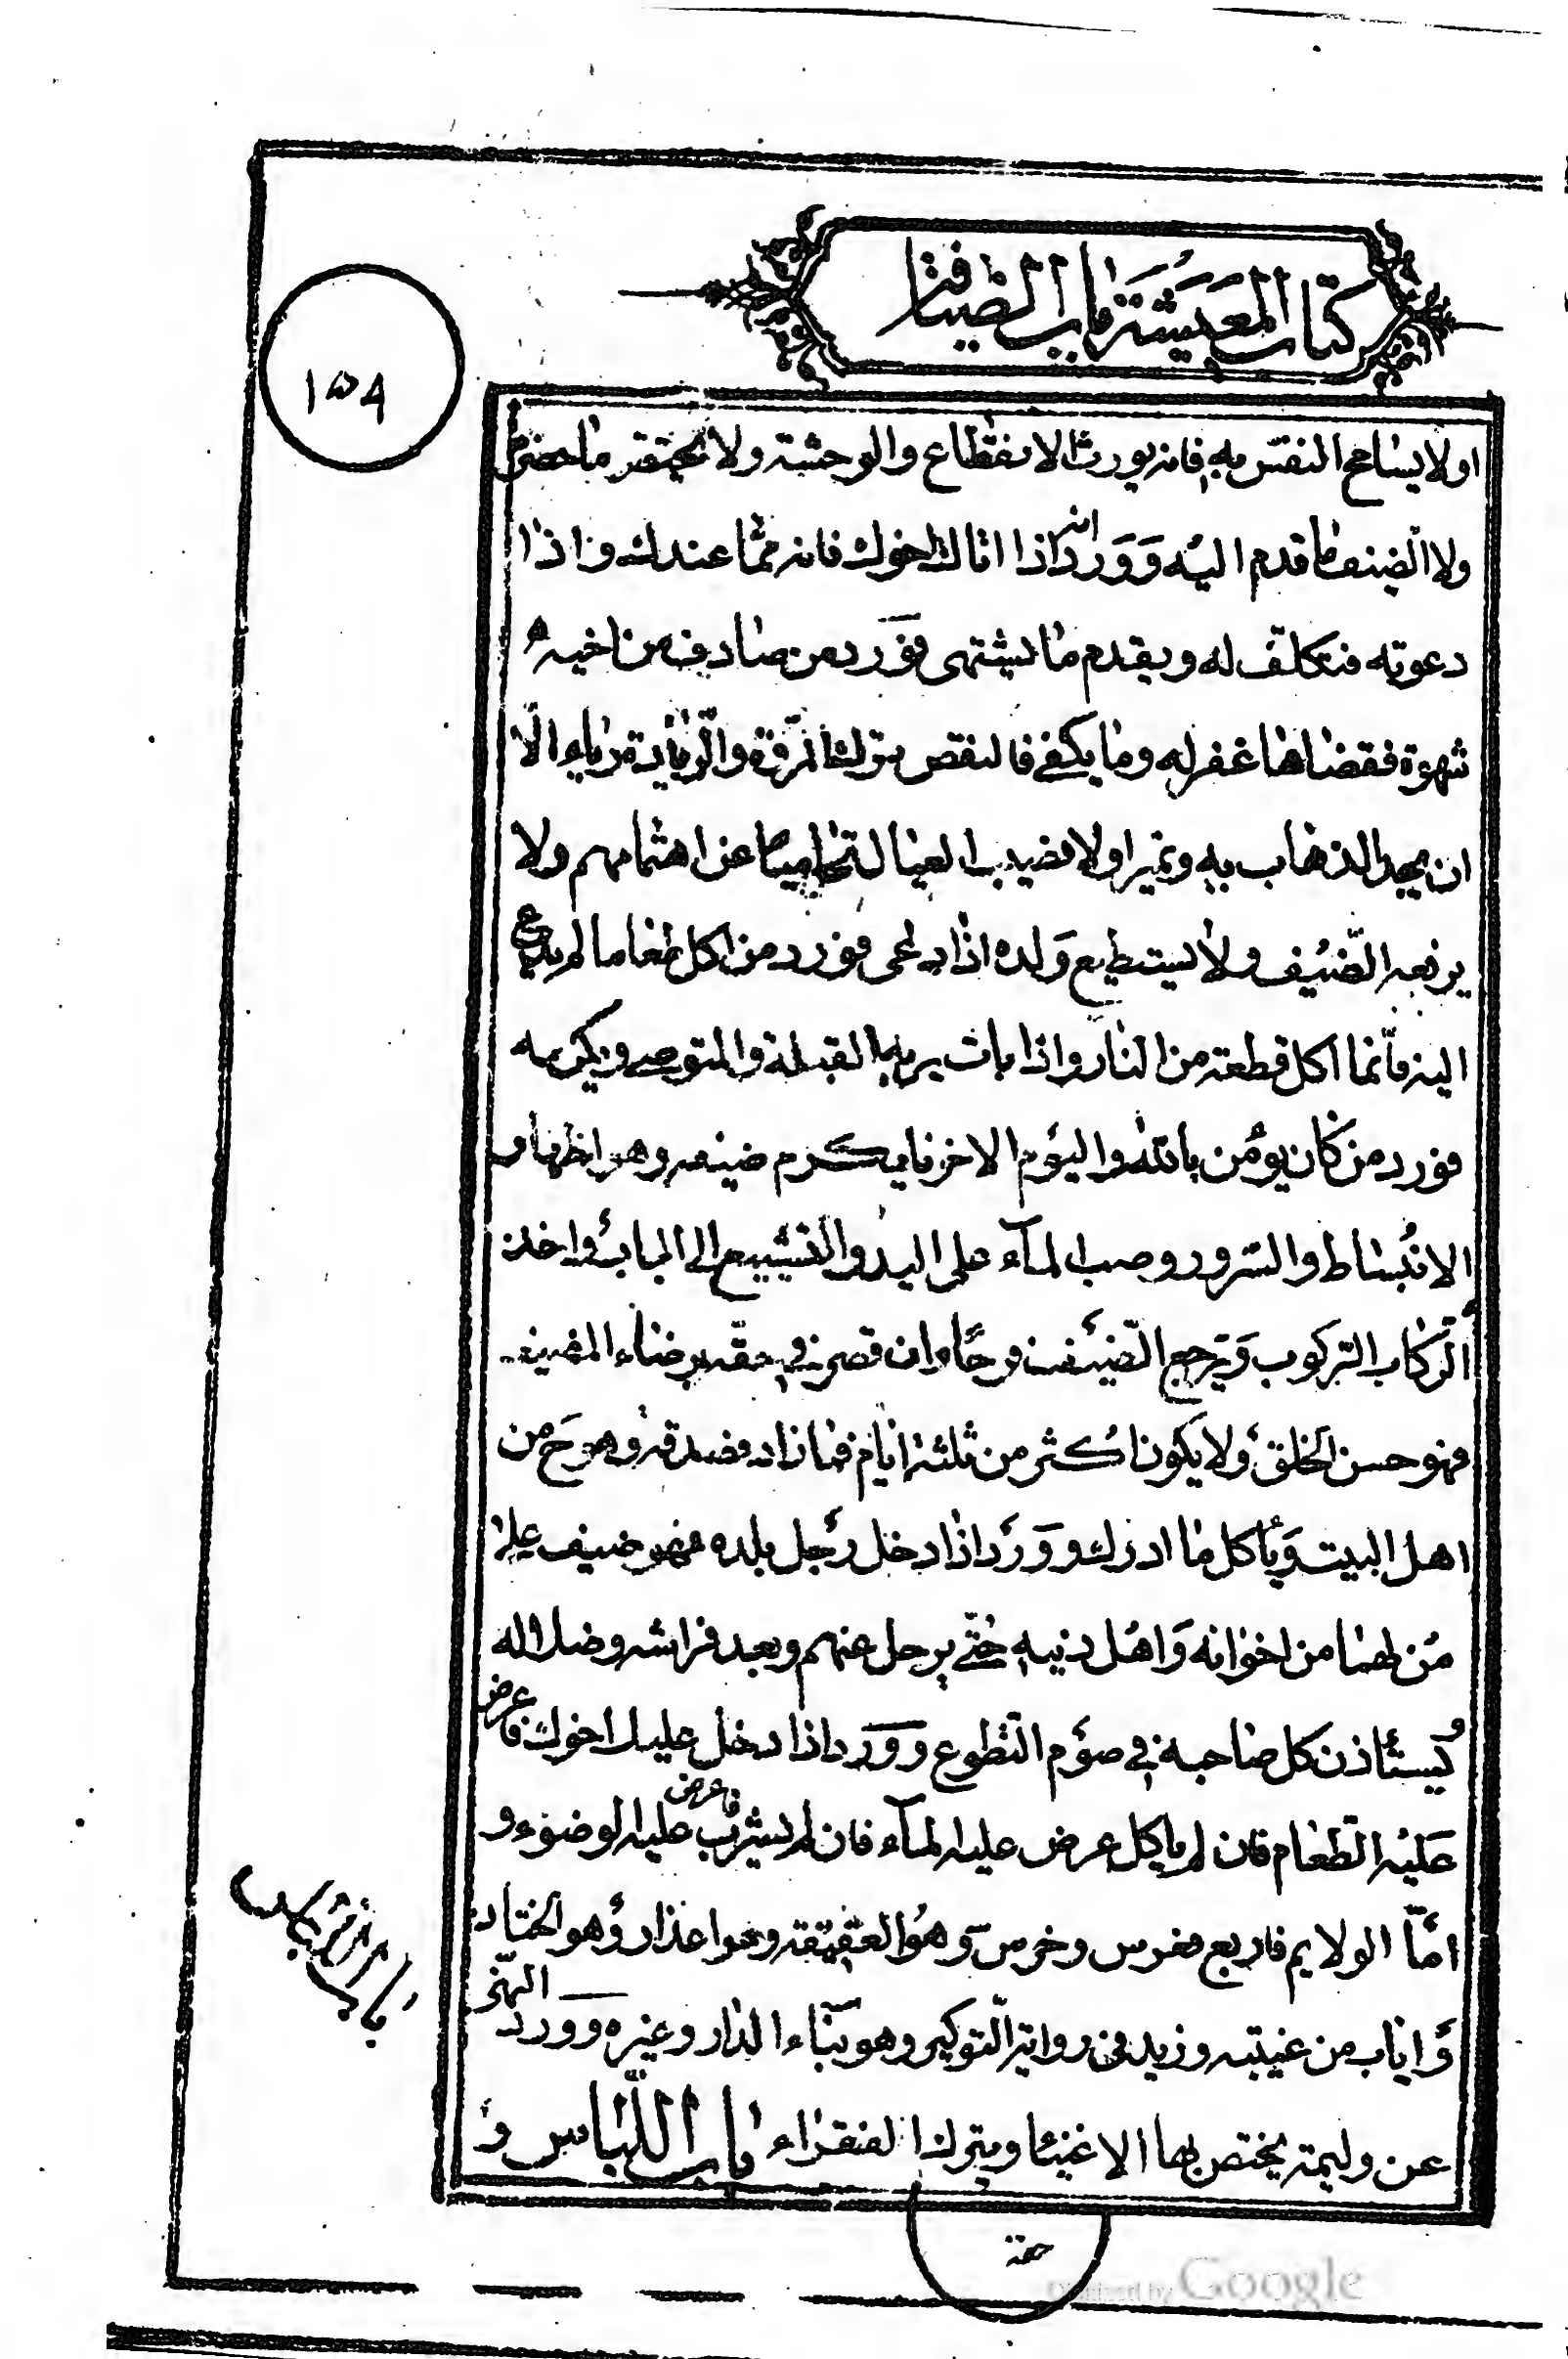 كتاب المعيشة باب الضيافة
١٥٨
او لا يسامح النفس به فانه يورث الانقطاع والوحشة ولا يحتقر ما حضر
ولا الضيف ما قدم اليه وورد انه اذا اتاك اخوك فاته مما عندك واذا
دعوته فتكلف له ويقدم ما يشتهى فورد من صادف من اخيه
شهوة فقضاها غفر له وما يكفى فالنقص بترك المروة والزيادة رياء الا
ان يجد الذهاب به وتميز اولا نصيب العيال تحاميا عن اهتمامهم ولا
يرفعه الضيف ولا يستطيع ولده اذا دعى فورد من اكل طعاما لم يدع
اليه فانما اكل قطعة من النار واذا بات يريه القبلة والمتوضى ويكرمه
فورد من كان يؤمن بالله واليوم الاخر فليكرم ضيفه وهو اظهار
الانبساط والسرور وصب الماء على اليد والتشييع الى الباب واخذ
الركاب للركوب ويرجع الضيف فرحا وان قصر فى حقه برضاء المضيف
فهو حسن الخلق ولا يكون اكثر من ثلثة ايام فما زاد فصدقة وهو ح من
اهل البيت ويأكل ما ادرك وورد اذا دخل رجل بلده فهو ضيف على
من بها من اخوانه واهل دينه حتى يرحل عنهم وبعد فراشه وضلاله
يستأذن كل صاحبه فى صوم التطوع وورد اذا دخل عليك اخوك فاعرض
عليه الطعام فان لم ياكل عرض عليه الماء فان لم يشرب فاعرض عليه الوضوء و
اما الولايم فاربع عرس وخرس وهو العقيقة وهو اعذار وهو الختان
واياب من غيبته وزيد فى رواية التوكير وهو بناء الدار وغيره وورد النهى
عن وليمة يختص بها الاغنياء ويترك الفقراء باب اللباس و